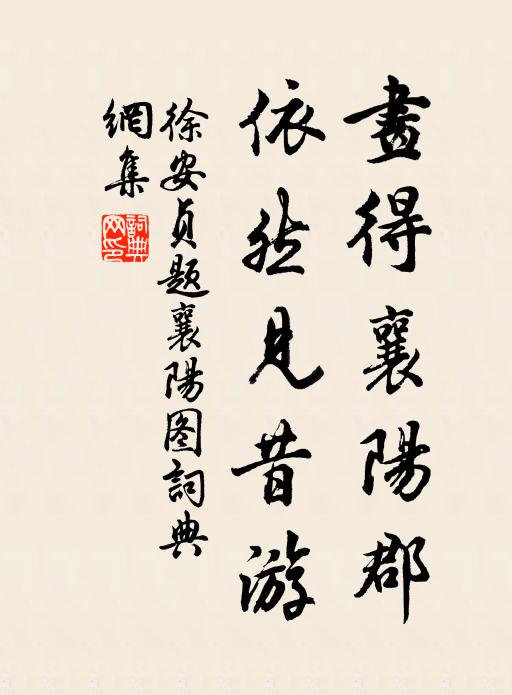 畫得襄陽郡
依然見昔游
徐安貞題襄陽图詞典
網集
詞典
网印